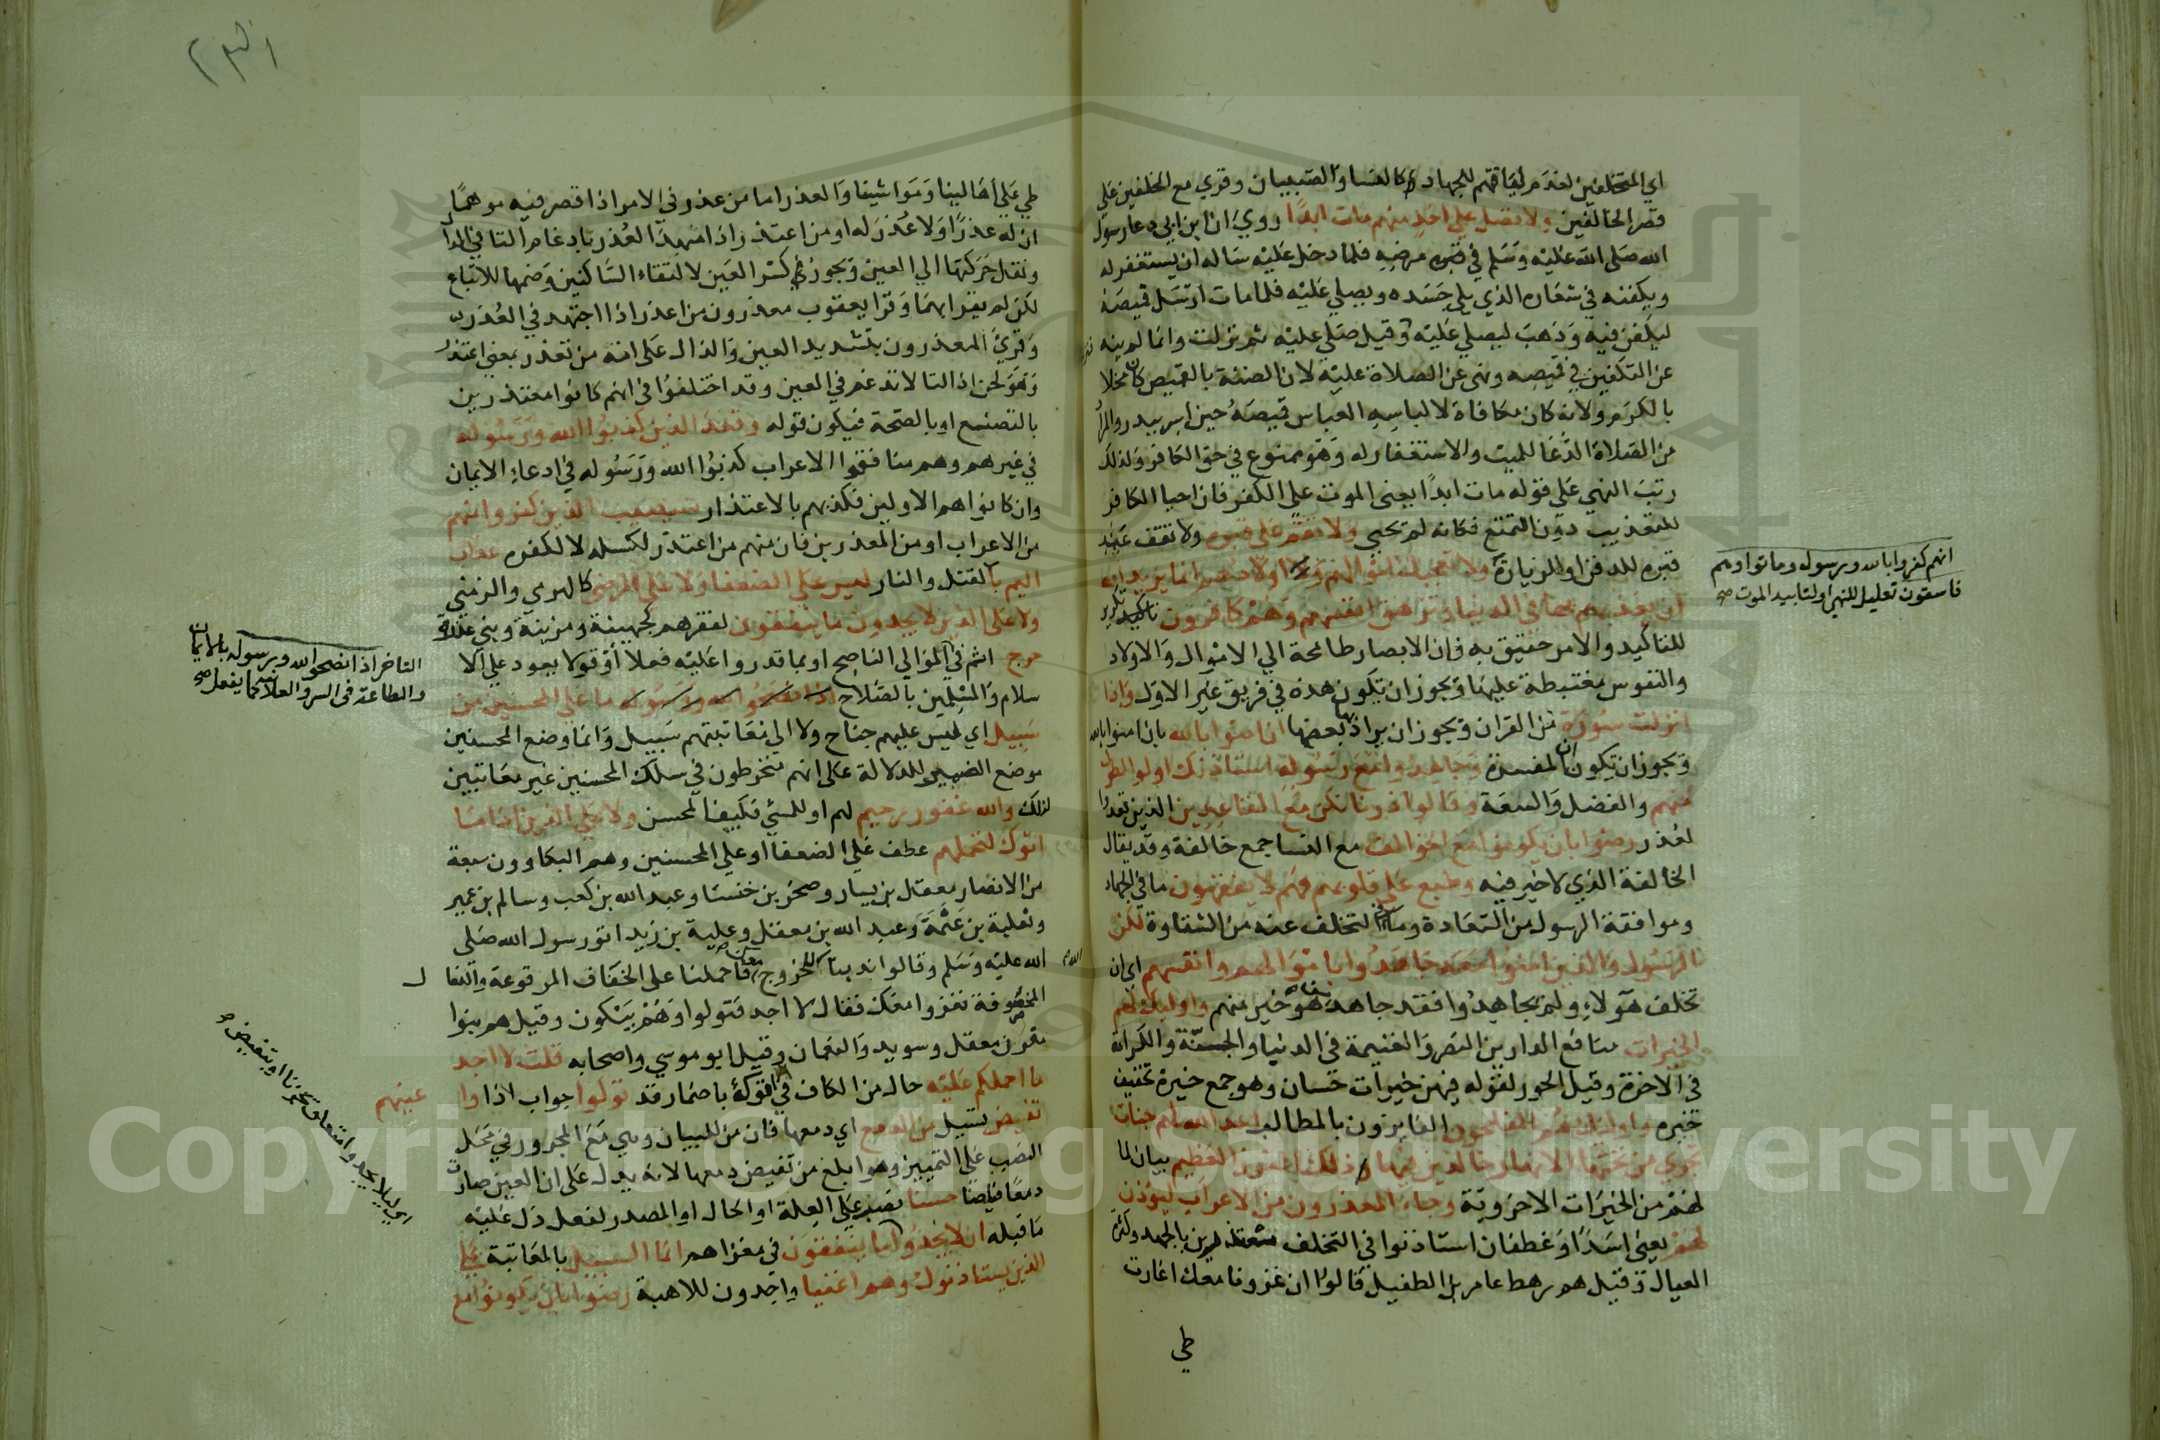 اي المتخلفين لعدم لياقتهم للجهاد كالنساء والصبيان وقري مع الخلفين علي
قصر الخالفين ولا تصل علي احد منهم مات ابدا روي ان ابن ابي دعا رسول
الله صلي الله عليه وسلم في مرضه فلما دخل عليه ساله ان يستغفر له
ويكفنه في شعاره الذي يلي جسده ويصلي عليه فلما مات ارسل قميصه
ليكفن فيه وذهب ليصلي عليه وقيل صلي عليه ثم نزلت وانما لم ينه
عن التكفين في قميصه ونهي عن الصلاة عليه لان الضنة بالقميص كان مخلا
بالكرم ولانه كان مكافاة لالباسه العباس قميصه حين اسر ببدر والمراد
من الصلاة الدعا للميت والاستغفار له وهو ممنوع في حق الكافر ولذلك
رتب النهي علي قوله مات ابدا يعني الموت علي الكفر فان احيا الكافر
للتعذيب دون التمتع فكانه لم يحيي ولا تقم علي قبره ولا تقف عند
قبره للدفن او الزيارة ولا تعجبك اموالهم واولادهم انما يريد الله
ان يعذبهم بها في الدنيا وتزهق انفسهم وهم كافرون تكرير
للتاكيد والامر حقيق به فان الابصار طامحة الي الاموال والاولاد
والنفوس مغتبطة عليها ويجوز ان تكون هذه في فريق غير الاول واذا
انزلت سورة من القران ويجوز ان يراد بها بعضها ان امنوا بالله بان امنوا بالله
ويجوز ان تكون ان المفسرة وجاهدوا مع رسوله استاذنك اولوا الطول
منهم والفضل والسعة وقالوا ذرنا نكن مع القاعدين الذين قعدوا
لعذر رضوا بان يكونوا مع الخوالف مع النسا جمع خالفة وقد يقال
الخالفة الذي لا خير فيه وطبع علي قلوبهم فهم لا يفقهون ما في الجهاد
وموافقة الرسول من السعادة وما في التخلف عنه من الشقاوة لكن
الرسول والذين امنوا معه جاهدوا باموالهم وانفسهم اي ان
تخلف هولاء ولم يجاهدوا فقد جاهد من هو خير منهم واوليك لهم
الخيرات منافع الدارين النصر والغنيمة في الدنيا والجنة والكرامة
في الاخرة وقيل الحور لقوله فيهن خيرات حسان وهو جمع خيرة تخفيف
خيرة واوليك هم المفلحون الفايزون بالمطالب اعد الله لهم جنات
تجري من تحتها الانهار خالدين فيها ذلك الفوز العظيم بيان لما
لهم من الخيرات الاخروية وجاء المعذرون من الاعراب ليوذن
لهم يعني اسدا وغطفان استاذنوا في التخلف معتذرين بالجهد وكثرة
العيال وقيل هم رهط عامر بن الطفيل قالوا ان غزونا معك اغارت
طي
انهم كفروا بالله ورسوله وماتوا وهم
فاسقون تعليل للنهي او لتابيد الموت صح
طي علي اهالينا ومواشينا والعذر اما من عذر في الامر اذا قصر فيه موهما
ان له عذرا ولا عذر له او من اعتذر اذا مهد العذر بادغام التا في الذال
ونقل حركتها الي العين ويجوز كسر العين لالتقاء الساكنين وضمها للاتباع
لكن لم يقرا بهما وقرا يعقوب معذرون من اعذر اذا اجتهد في العذر
وقري المعذرون بتشديد العين والذال علي انه من تعذر بمعني اعتذر
وهو لحن اذ التا لا تدغم في العين وقد اختلفوا في انهم كانوا معتذرين
بالتصنع او بالصحة فيكون قوله وقعد الذين كذبوا الله ورسوله
في غيرهم وهم منافقوا الاعراب كذبوا الله ورسوله في ادعاء الايمان
وان كانوا هم الاولين فكذبهم بالاعتذار سيصيب الذين كفروا منهم
من الاعراب او من المعذرين فان منهم من اعتذر لكسله لا لكفره عذاب
اليم بالقتل والنار ليس علي الضعفا ولا علي المرضي كالهرمي والزمني
ولا علي الذين لا يجدون ما ينفقون لفقرهم كجهينة ومزينة وبني عذرة
حرج اثم في التاخر اذا نصحوا الله ورسوله بالايمان
والطاعة في السر والعلانية كما يفعل صح
الموالي الناصح او بما قدروا عليه فعلا او قولا يعود علي الا
سلام والمسلمين بالصلاح ما علي المحسنين من
سبيل اي ليس عليهم جناح ولا الي معاتبتهم سبيل وانما وضع المحسنين
موضع الضمير للدلالة علي انهم منخرطون في سلك المحسنين غير معاتبين
لذلك والله غفور رحيم لهم او للمسي فكيف المحسن ولا علي الذين اذا ما
اتوك لتحملهم عطف علي الضعفا او علي المحسنين وهم البكاوون سبعة
من الانصار معقل بن يسار وصخر بن خنسا وعبد الله بن كعب وسالم بن عمير
وثعلبة بن عنمة وعبد الله بن معقل وعلية بن زيد اتو رسول الله صلي
الله عليه وسلم وقالوا ندبنا للخروج فاحملنا علي الخفاف المرقوعة والنعا
المخصوفة نغزوا معك فقال لا اجد فتولوا وهم يبكون وقيل هم بنوا
مقرن معقل وسويد والنعمان وقيل ابو موسي واصحابه قلت لا اجد
ما احملكم عليه حال من الكاف في اتوك باضمار قد تولوا جواب اذا وا عينهم
تفيض تسيل من الدمع اي دمعها فان من للبيان وهي مع المجرور في محل
النصب علي التمييز وهو ابلغ من تفيض دمعها لانه يدل علي ان العين صارت
دمعا فياضا حزنا نصب علي العلة او الحال او المصدر لفعل دل عليه
ما قبله ان لا يجدوا ما ينفقون في مغزاهم انما السبيل بالمعاتبة علي
الذين يستاذنونك وهم اغنيا واجدون للاهبة رضوا بان يكونوا مع
اي ليلا يجدوا متعلق بحزنا او بتفيض
Copyright © King Saud University